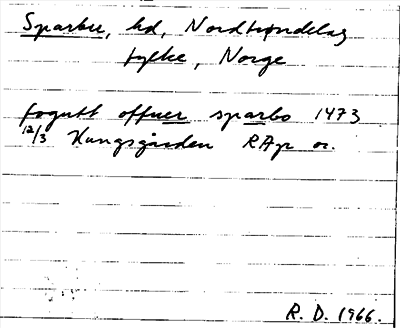 Sparbu, hd, Nordtrøndelag
fylke, Norge
fogutt offuer sparbo 1473
12/3 Kungsgården RAp or.
R. D. 1966.